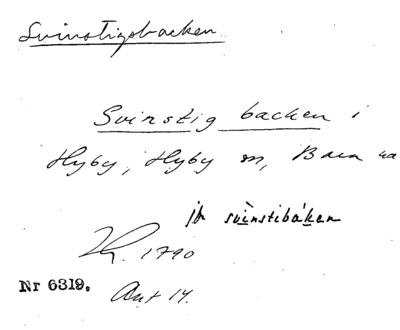 Svinstigsbacken
Svinstig backen i
Hyby, Hyby sn, Bara hd
jfr svinstibáken
1790
Nr 6319. Ant 14.